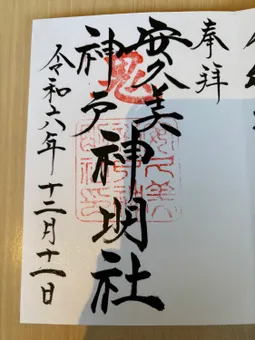 奉拝
安久美
神戸神明社
鬼
令和六年十二月十一日